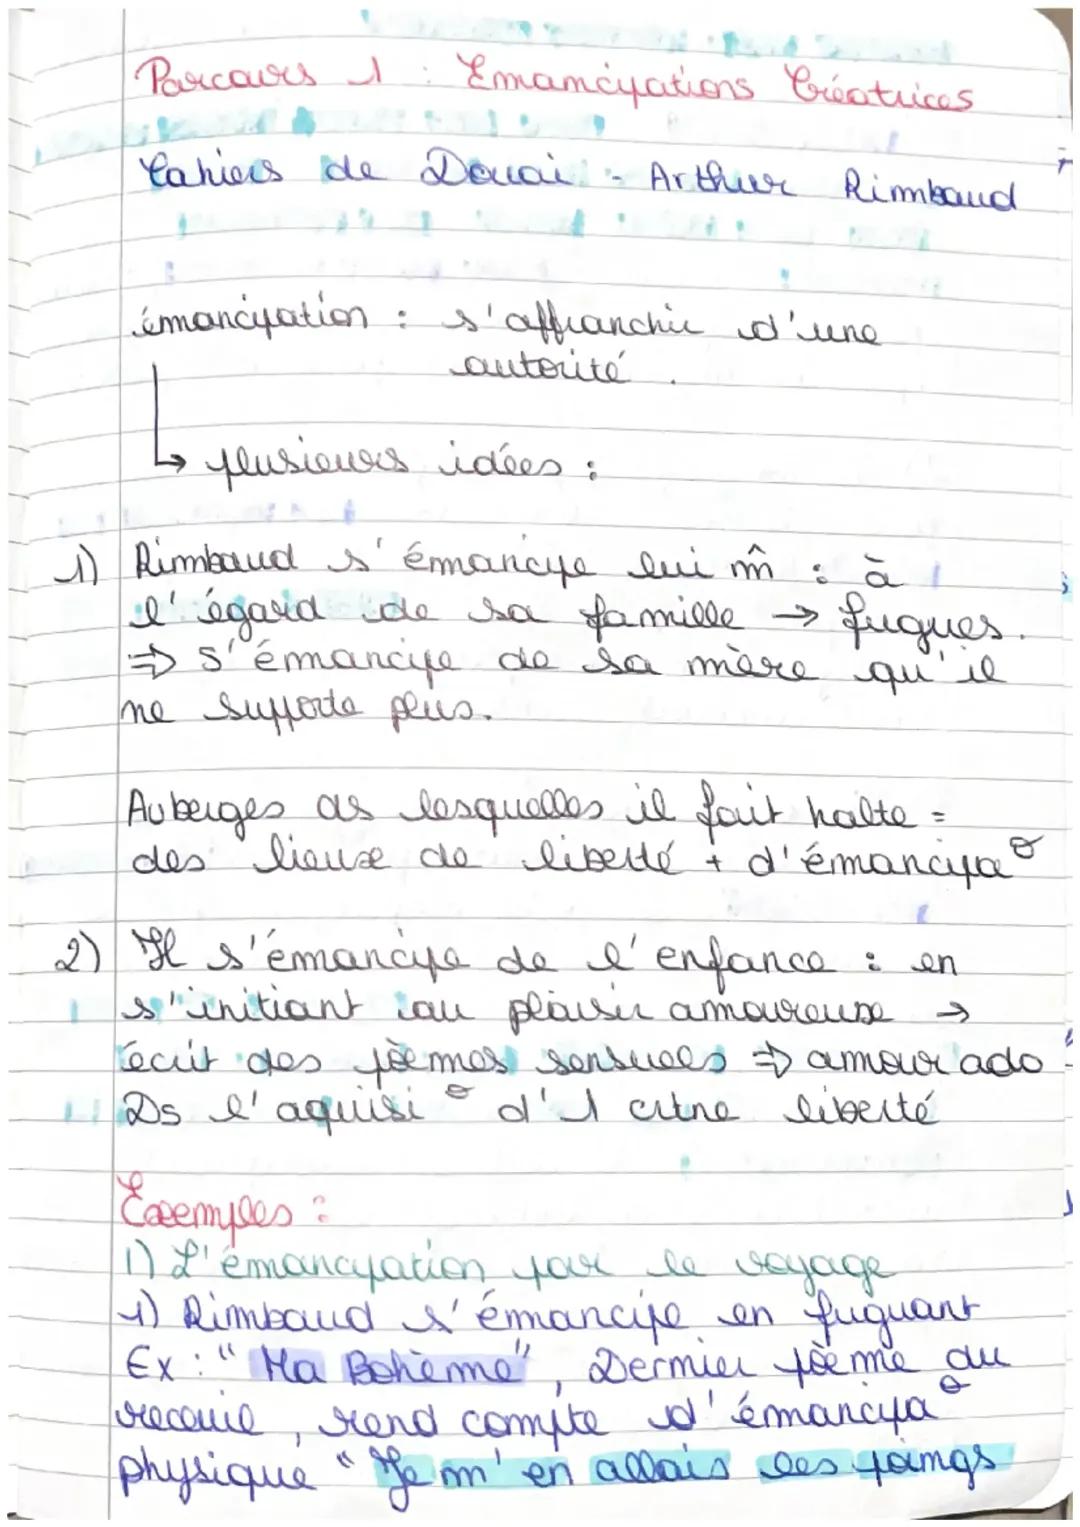 Parcours 1 : Emancipations Créatrices
Cahiers de Douai - Arthur Rimbaud
émancipation : s'affranchir d'une
autorité.
↳ plusieurs idées :
1) Rimbaud s'émancipe lui m̂ : à
l'égard de sa famille → fugues.
⇒ s'émancipe de sa mère qu'il
ne supporte plus.
Auberges ds lesquelles il fait halte =
des lieux de liberté + d'émancipaᵒ
2) Il s'émancipe de l'enfance : en
s'initiant au plaisir amoureux →
écrit des poèmes sensuels ⇒ amour ado
Ds l'aquisiᵒ d'1 crtne liberté
Exemples :
1) L'émancipation par le voyage
1) Rimbaud s'émancipe en fuguant
Ex : "Ma Bohème", Dernier poème du
receuil, rend compte d'émancipaᵒ
physique "Je m'en allais les poings